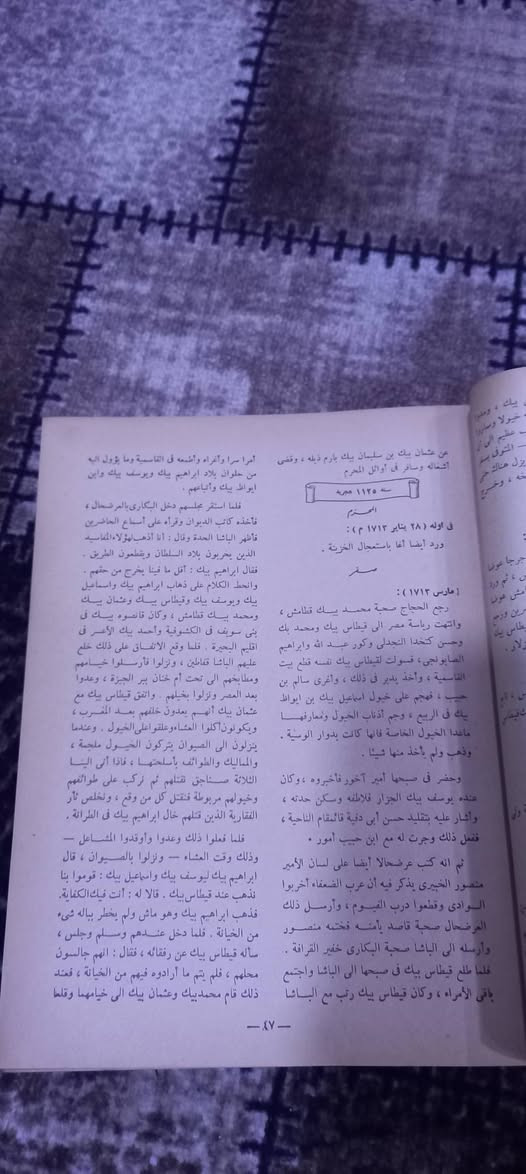 عن عثمان بيك بن سليمان بيك بارم ذيله ، وقضى
أشغاله وسافر فى أوائل المحرم
سنة ١١٢٥ هجرية
المحرم
فى أوله (٢٨ يناير ١٧١٣ م) :
ورد أيضا أغا باستعجال الخزينة .
صفر
[مارس ١٧١٣) :
رجع الحجاج صحبة محمد بيك قطامش ،
وانتهت رياسة مصر الى قيطاس بيك ومحمد بك
وحسن كتخدا النجدلى وكور عبد الله وابراهيم
الصابونجى ، فسولت لقيطاس بيك نفسه قطع بيت
القاسمية ، وأخذ يدبر فى ذلك ، وأغرى سالم بن
حبيب ، فهجم على خيول اسماعيل بيك بن ايواظ
بيك فى الربيع ، وجم أذناب الخيول ومعارفهـا
ماعدا الخيول الخاصة فانها كانت بدوار الوسية .
وذهب ولم يأخذ منها شيئا .
وحضر فى صبحها أمير آخور فأخبروه ، وكان
عنده يوسف بيك الجزار فلاطفه وسكن حدته ،
وأشار عليه بتقليد حسن أبى دفية قائمقام الناحية ،
ففعل ذلك وجرت له مع ابن حبيب أمور .
ثم انه كتب عرضحالا أيضا على لسان الأمير
منصور الخبيرى يذكر فيه أن عرب الضعفاء أخربوا
الـوادى وقطعوا درب الفيـوم ، وأرسل ذلك
العرضحال صحبة قاصد يأمنه فختمه منصـور
وأرسله الى الباشا صحبة البكارى خفير القرافة .
فلما طلع قيطاس بيك فى صبحها الى الباشا واجتمع
باقى الأمراء ، وكان قيطاس بيك رتب مع البـاشا
أمرا سرا وأغراه وأطمعه فى القاسمية وما يؤول اليه
من حلوان بلاد ابراهيم بيك ويوسف بيك وابن
ايواظ بيك وأتباعهم .
فلما استقر مجلسهم دخل البكارى بالعرضحال ،
فأخذه كاتب الديوان وقرأه على أسماع الحاضرين
فأظهر الباشا الحدة وقال : أنا أذهب لهؤلاء المفاسيد
الذين يخربون بلاد السلطان ويقطعون الطريق .
فقال ابراهيم بيك : أقل ما فينا يخرج من حقهم .
وانحط الكلام على ذهاب ابراهيم بيك واسماعيل
بيك ويوسف بيك وقيطاس بيـك وعثمان بيـك
ومحمد بيـك قطامش ، وكان قانصوه بيـك فى
بنى سويف فى الكشوفية وأحمد بيك الأعسر فى
اقليم البحيرة . فلما وقع الاتفـاق على ذلك خلع
عليهم الباشا قفاطين ، ونزلوا فأرسلـوا خيـامهم
ومطابخهم الى تحت أم خنان ببر الجيزة ، وعدوا
بعد العصر ونزلوا بخيلهم . واتفق قيطاس بيك مع
عثمان بيك أنهـم يعدون خلفهم بعد المغـرب ،
ويكونون أكلوا العشاء وعلقوا على الخيول . وعندما
ينزلون الى الصيوان يتركون الخيـول ملجمة ،
والمماليك والطوائف بأسلحتهـا ، فاذا أتى الينـا
الثلاثة صناجق نقتلهم ثم نركب على طوائفهم
وخيولهم مربوطة فنقتل كل من وقع ، ونخلص ثأر
الفقارية الذين قتلهم خال ابراهيم بيك فى الطرانة .
فلما فعلوا ذلك وعدوا وأوقدوا المشـاعل —
وذلك وقت العشاء — ونزلوا بالصـيوان ، قال
ابراهيم بيك ليوسف بيك واسماعيل بيك : قوموا بنا
نذهب عند قيطاس بيك . قالا له : أنت فيك الكفاية.
فذهب ابراهيم بيك وهو ماش ولم يخطر بباله شىء
من الخيانة . فلما دخل عنـدهم وسـلم وجلس ،
سأله قيطاس بيك عن رفقائه ، فقال : انهم جالسون
محلهم ، فلم يتم ما أرادوه فيهم من الخيانة ، فعند
ذلك قام محمد بيك وعثمان بيك الى خيامهما وقلعا
— ٤٧ —